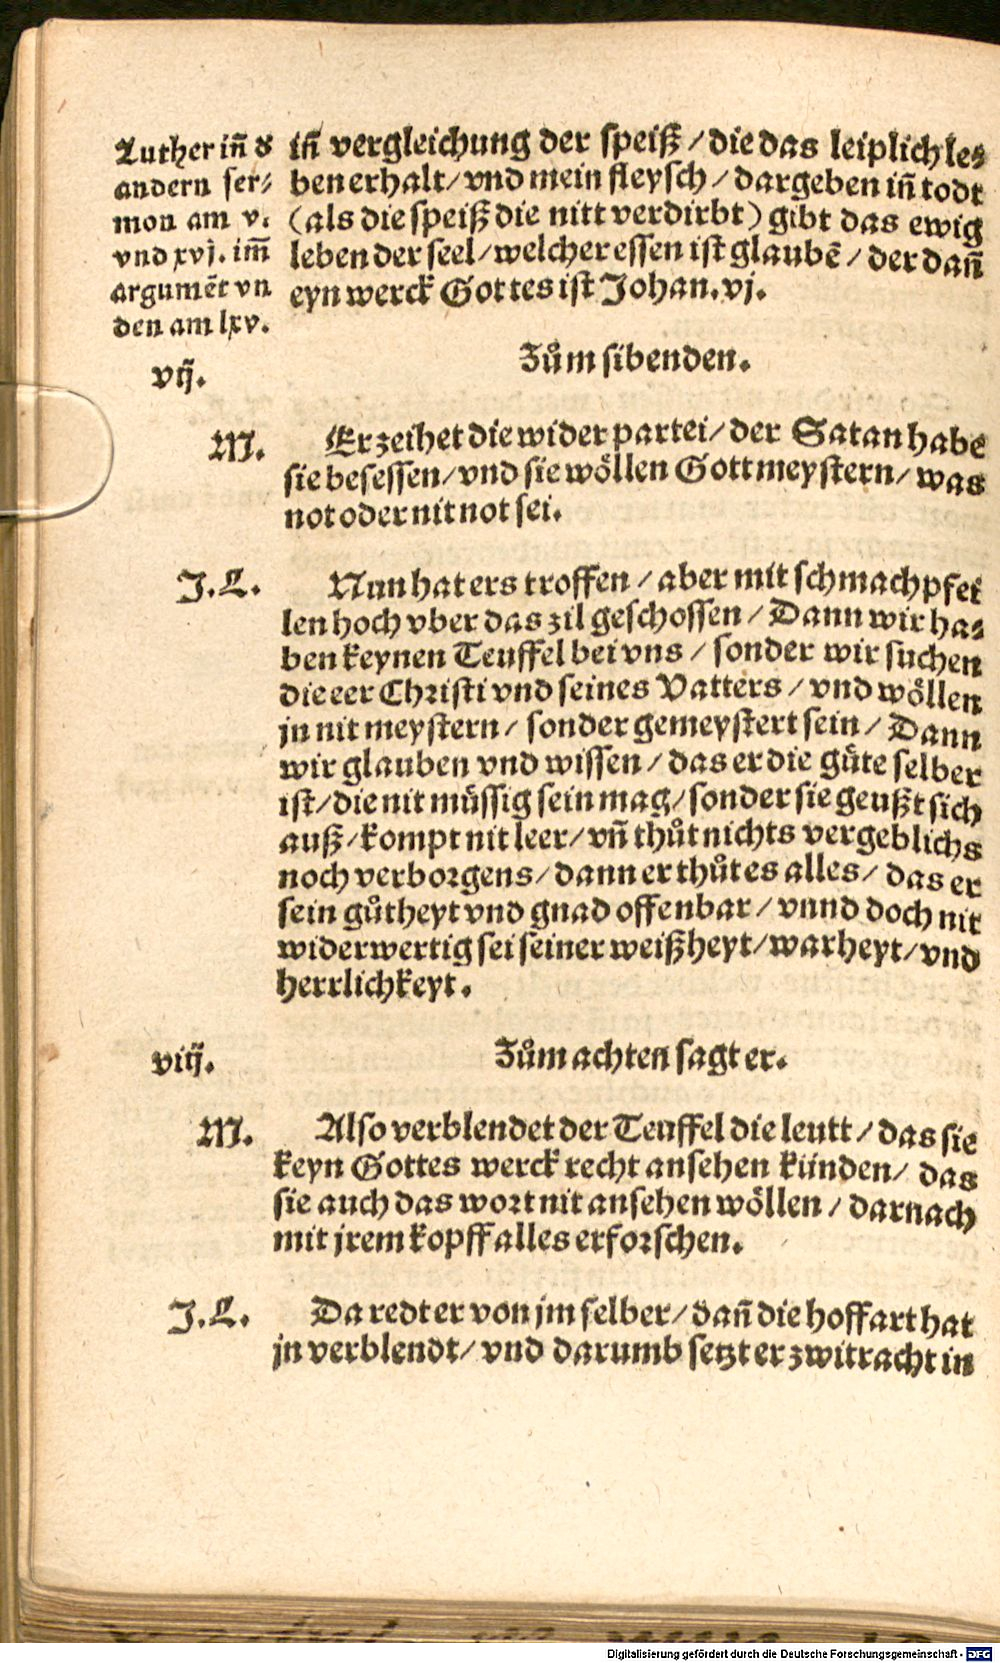 Luther iñ d̕
andern ser-
mon am v.
vnd xvj. im̃
argumẽt vn
den am lxv.
iñ vergleichung der speiß / die das leiplich le-
ben erhalt / vnd mein fleysch / dargeben iñ todt
(als die speiß die nitt verdirbt) gibt das ewig
leben der seel / welcher essen ist glaubẽ / der dañ
eyn werck Gottes ist Johan. vj.
vij.
Zům sibenden.
M.
Er zeihet die wider partei / der Satan habe
sie besessen / vnd sie wöllen Gott meystern / was
not oder nit not sei.
J. L.
Nun hat ers troffen / aber mit schmach pfei
len hoch vber das zil geschossen / Dann wir ha-
ben keynen Teuffel bei vns / sonder wir suchen
die eer Christi vnd seines Vatters / vnd wöllen
jn nit meystern / sonder gemeystert sein / Dann
wir glauben vnd wissen / das er die güte selber
ist / die nit müssig sein mag / sonder sie geußt sich
auß / kompt nit leer / vñ thůt nichts vergeblichs
noch verborgens / dann er thůt es alles / das er
sein gůtheyt vnd gnad offenbar / vnnd doch nit
widerwertig sei seiner weißheyt / warheyt / vnd
herrlichkeyt.
viij.
Zům achten sagt er.
M.
Also verblendet der Teuffel die leutt / das sie
keyn Gottes werck recht ansehen künden / das
sie auch das wort nit ansehen wöllen / darnach
mit jrem kopff alles erforschen.
J. L.
Da redt er von jm selber / dañ die hoffart hat
jn verblendt / vnd darumb setzt er zwitracht in
Digitalisierung gefördert durch die Deutsche Forschungsgemeinschaft - DFG